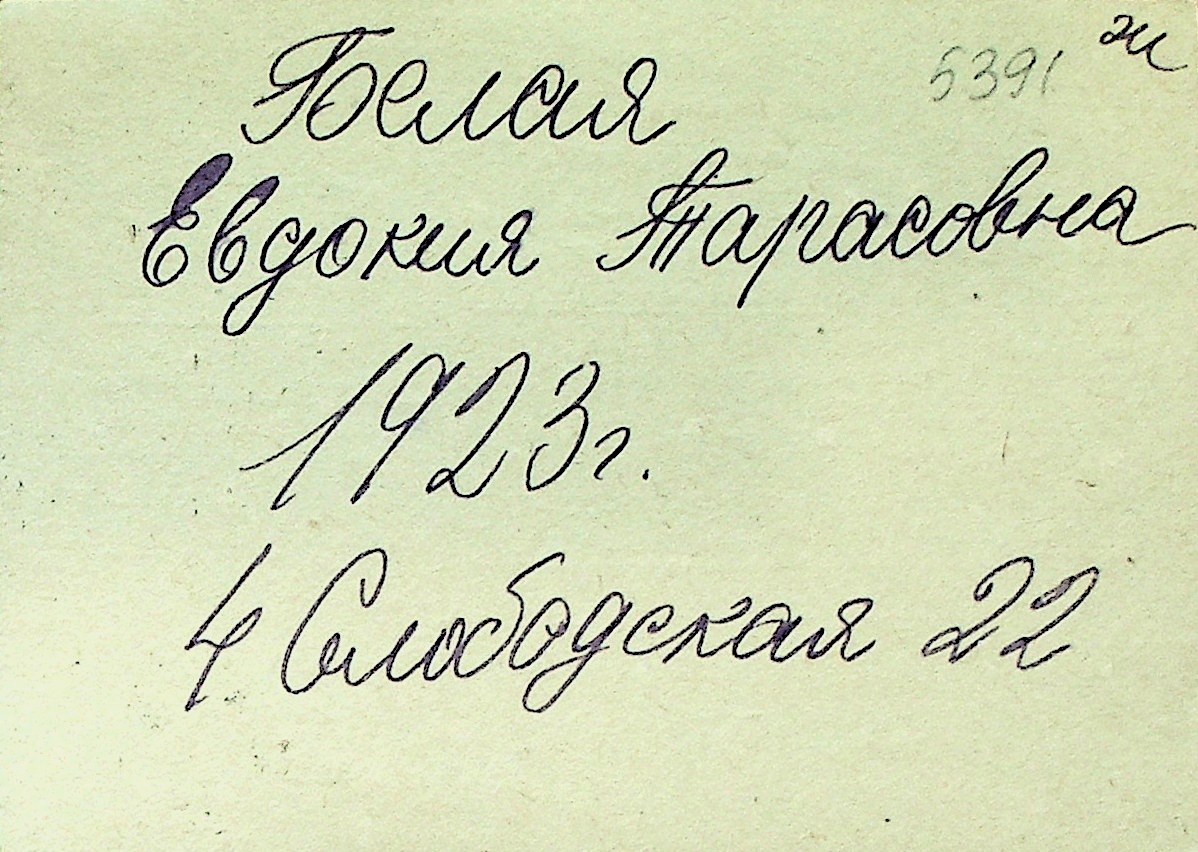 5391 ж
Белая
Евдокия Тарасовна
1923г.
4 Слободская 22